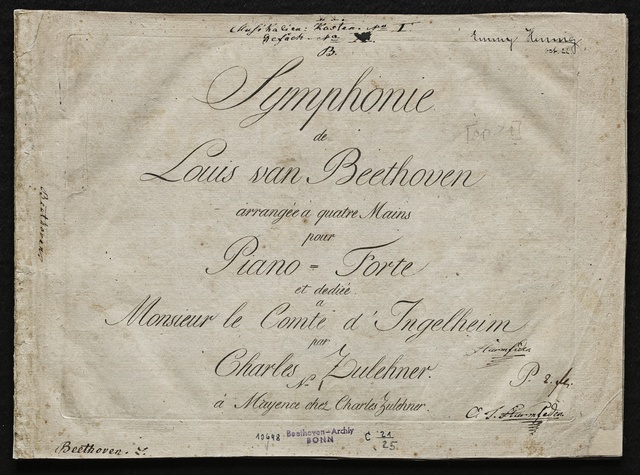 Musikalien: Kasten. No I
Gefach. No
B.
Emmy
Symphonie
de
[op 21]
Louis van Beethoven
arrangée à quatre Mains
pour
Piano = Forte
et dediée
a
Monsieur le Comte d'Ingelheim
par
Charles Zulehner.
No
P. 2.
à Mayence chez Charles Zulehner.
C. J.
Beethoven.
Beethoven.
10698
Beethoven-Archiv
BONN
C 21
25.